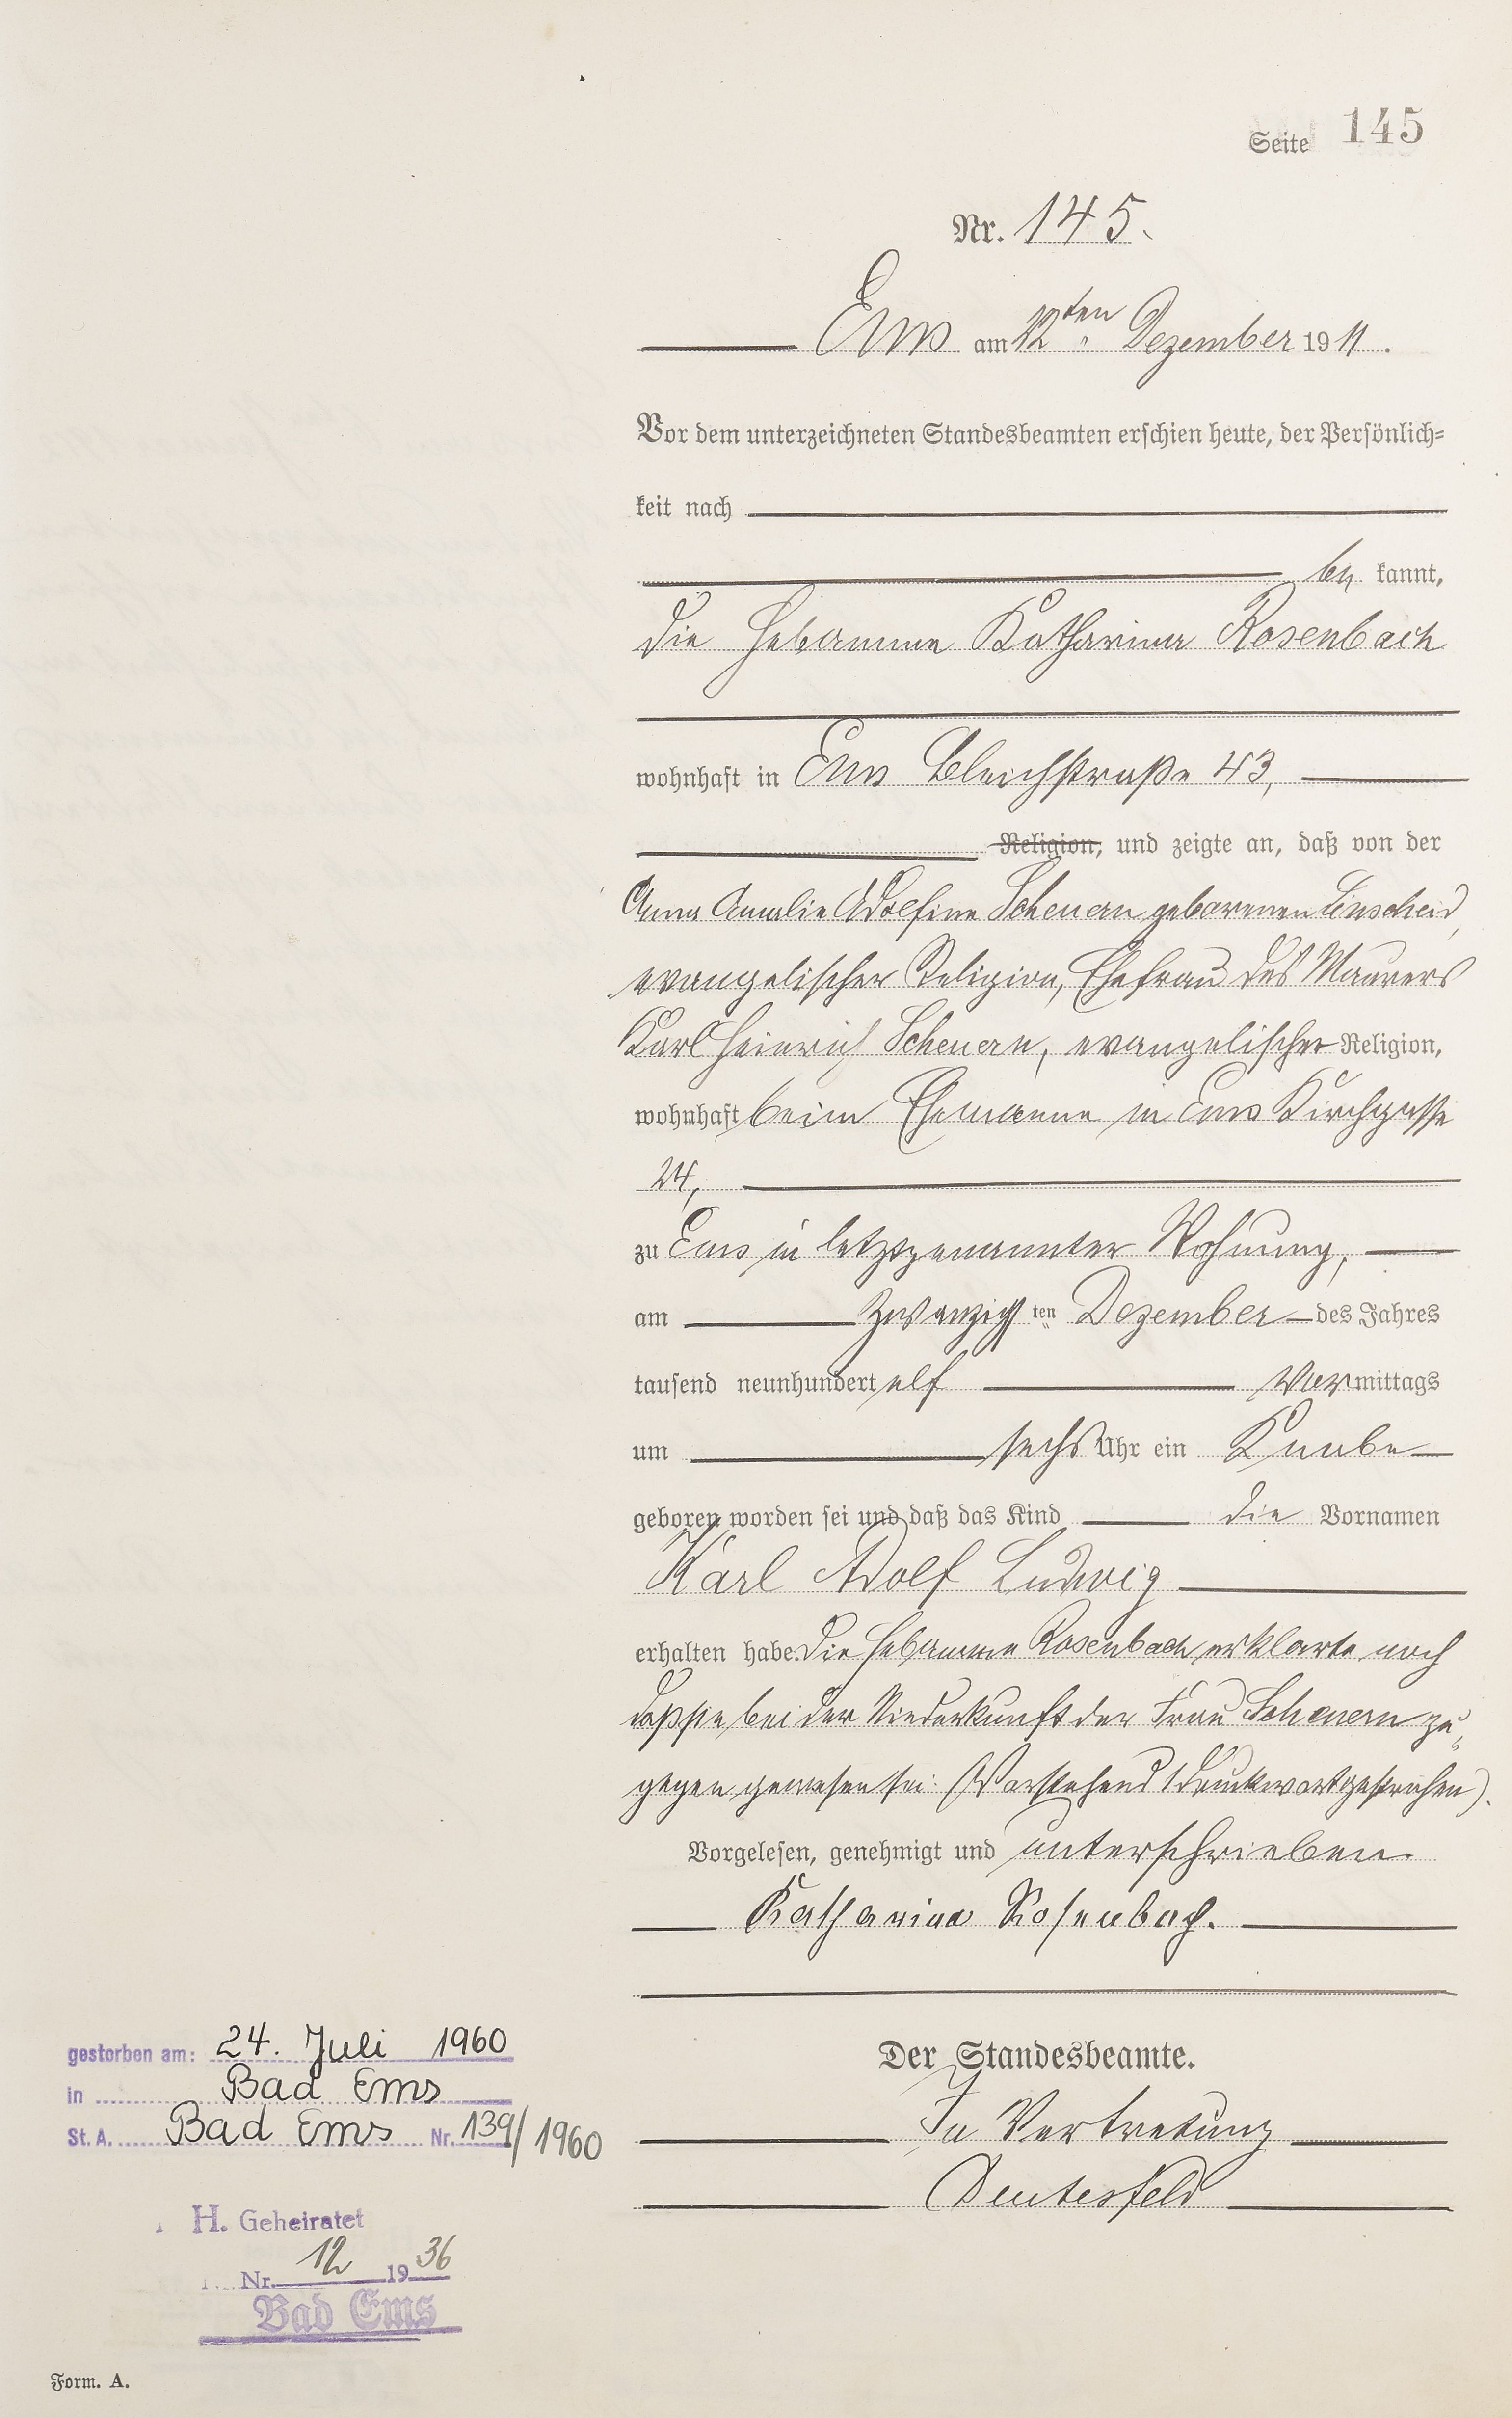 Seite 145
Nr. 145.
Ems am 22ten Dezember 1911.
Vor dem unterzeichneten Standesbeamten erschien heute, der Persönlich=
keit nach
be kannt,
die Hebamme Katharina Rosenbach
wohnhaft in Ems Bleichstraße 43,
Religion, und zeigte an, daß von der
Anna Amalie Adolfine Scheuern geborenen Linscheid,
evangelischer Religion, Ehefrau des Maurers
Karl Heinrich Scheuern, evangelischer Religion,
wohnhaft beim Ehemanne in Ems Kirchgasse
24,
zu Ems in letztgenannter Wohnung,
am zwanzigsten Dezember des Jahres
tausend neunhundert elf Vormittags
um sechs Uhr ein Knabe
geboren worden sei und daß das Kind die Vornamen
Karl Adolf Ludwig
erhalten habe. Die Hebamme Rosenbach erklärte noch
daß sie bei der Niederkunft der Frau Scheuern zu„
gegen gewesen sei. (Vorstehend 1 Druckwort gestrichen).
Vorgelesen, genehmigt und unterschrieben.
Katharina Rosenbach.
Der Standesbeamte.
In Vertretung
Deutesfeld
gestorben am: 24. Juli 1960
in Bad Ems
St. A. Bad Ems Nr. 139/1960
H. Geheiratet
Nr. 12 1936
Bad Ems
Form. A.